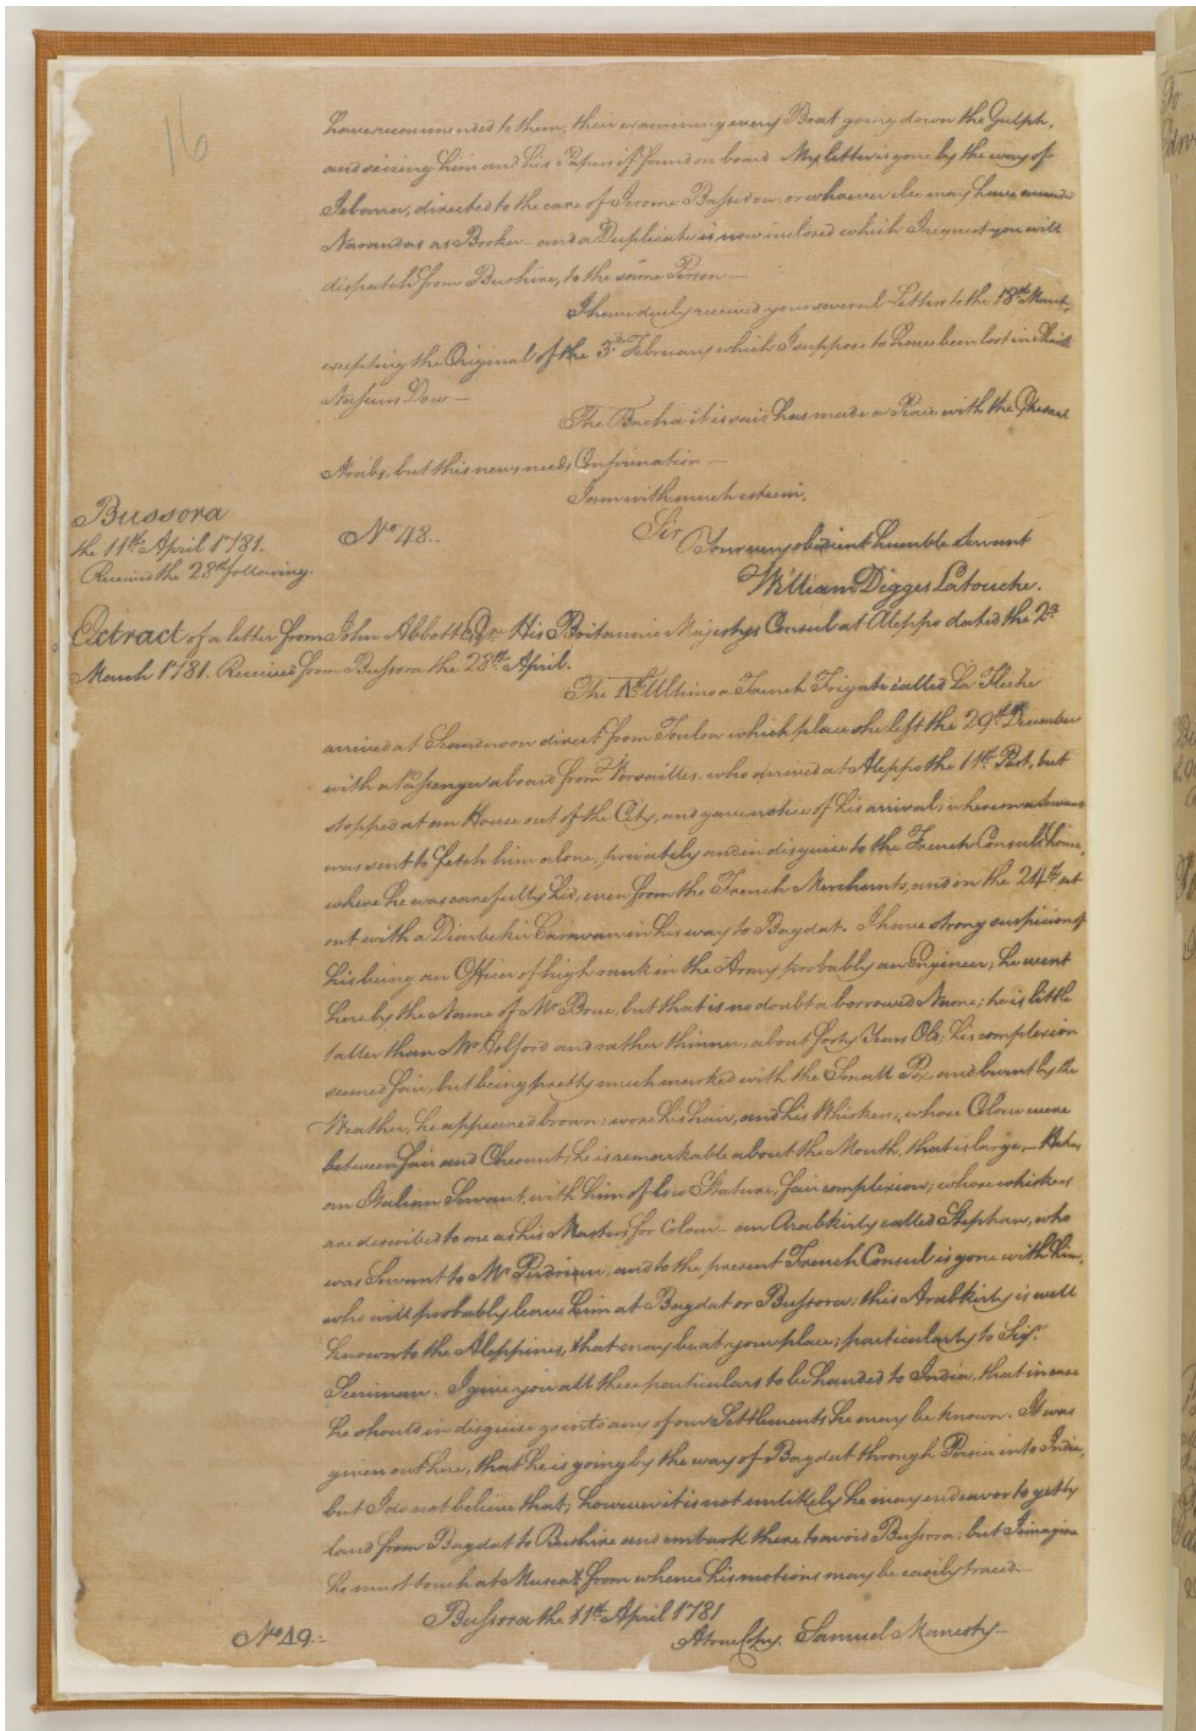 16
have recommended to them, their examining every Boat going down the Gulph,
and seizing him and his Papers if found on board My letter is gone by the way of
directed to the care of Jerome or whoever else may have
Narandas as Broker - and a Duplicate is now inclosed which I request you will
dispatch from Bushire, to the same Person —
I have duely received your several Letters to the 18th
excepting the Original of the 3d. February which I suppose to have been lost in
Nassirs Dow —
The Bacha it is said has made a Peace with the
Arabs, but this news needs Confirmation —
I am with much esteem,
Bussora
the 11th. April 1781.
Received the 28th following.
No 48..
Sir
Your very obedient humble Servant
William Digges Latouche.
Extract of a letter from John Abbott Esqr. His Britannic Majestys Consul at Aleppo dated the 2d
March 1781. Received from Bussora the 28th. April.
The Ultimo a French Frigate called La Fleche
arrived at Scanderoon direct from Toulon which place she left the 29th December
with a Passenger aboard from Versailles, who arrived at Aleppo the 11th. Past, but
stopped at an House out of the City, and gave notice of his arrival; whereon
was sent to fetch him alone, privately and in disguise to the French Consuls house,
where he was carefully hid, even from the French Merchants, and on the 24th. set
out with a Diarbekir Caravan in his way to Bagdat. I have strong suspicion of
his being an Officer of high rank in the Army probably an Engineer; he went
here by the Name of Mr but that is no doubt a borrowed Name; he is little
taller than Mr and rather thinner, about forty Years Old, his complexion
seemed fair, but being pretty much marked with the Small Pox, and burnt by the
Weather, he appeared brown; wore his hair, and his Whiskers, whose Colour were
between fair and Chesnut; he is remarkable about the Mouth, that is large, — He has
an Italian Servant, with him of low Stature, fair complexion; whose whiskers
are described to me as his Masters for Colour - an Arabkirly called Stephan, who
was Servant to Mr and to the present French Consul is gone with him,
who will probably leave him at Bagdat or Bussora; this Arabkirly is well
known to the Aleppines, that may be at your place; particularly to Sigr.
I give you all these particulars to be handed to India, that in case
he should in disguise go into any of our Settlements he may be known. It was
given out here, that he is going by the way of Bagdat through Persia into India,
but I do not believe that; however it is not unlikely he may endeavor to get by
land from Bagdat to Bushire and embark there to avoid Bussora; but I imagine
he must touch at Muscat from whence his motions may be easily traced —
Bussora the 11th April 1781
No 49.:
A true Copy. Samuel Manesty —